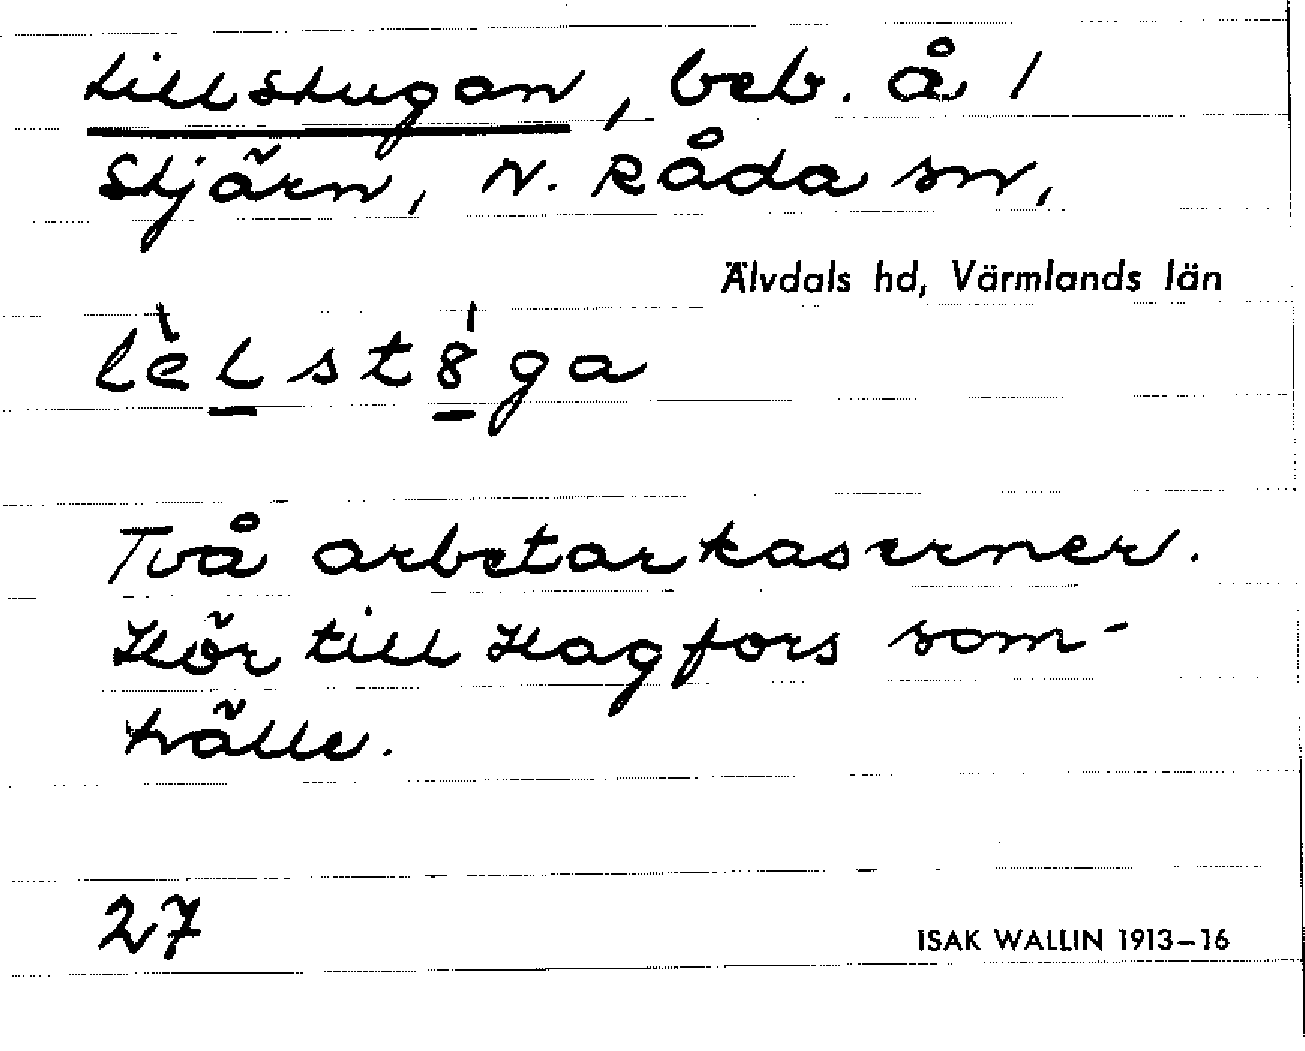 Lillstugan, beb. å 1
Stjärn, N. Råda sn,
Älvdals hd, Värmlands län
lèlst8́ga
Två arbetarkaserner.
Hör till Hagfors sam-
hälle.
27
ISAK WALLIN 1913–16